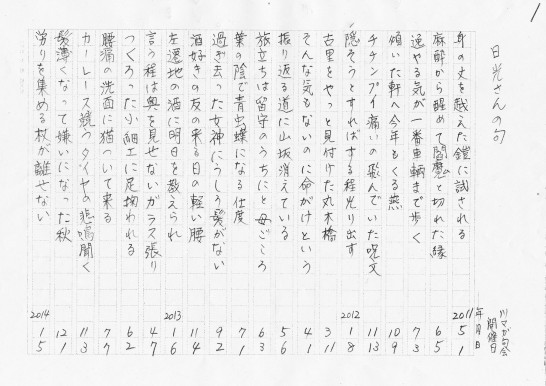 1
日光さんの句
川マガ句会
開催日
年月日
身の丈を越えた鎧に試される 2011 5 1
麻酔から醒めて閻魔と切れた縁 6 5
逸やる気が一番車輌まで歩く 7 3
傾いた軒へ今年もくる燕 10 9
チチンプイ痛いの飛んでいた呪文 11 13
隠そうとすればする程光り出す 2012 1 8
古里をやっと見付けた丸木橋 3 11
そんな気もないのに命がけという 4 1
振り返る道に山坂消えている 5 6
旅立ちは留守のうちにと母ごころ 6 3
葉の陰で青虫蝶になる仕度 7 1
過ぎ去った女神にうしろ髪がない 9 2
酒好きの友の来る日の軽い腰 11 4
左遷地の酒に明日を教えられ 2013 1 6
言う程は奥を見せないガラス張り 4 7
つくろった小細工に足掬われる 6 2
腰痛の洗面に猫ついて来る 7 7
カーレース競うタイヤの悲鳴聞く 11 3
髪薄くなって嫌いになった秋 12 1
労りを集める杖が離せない 2014 1 5